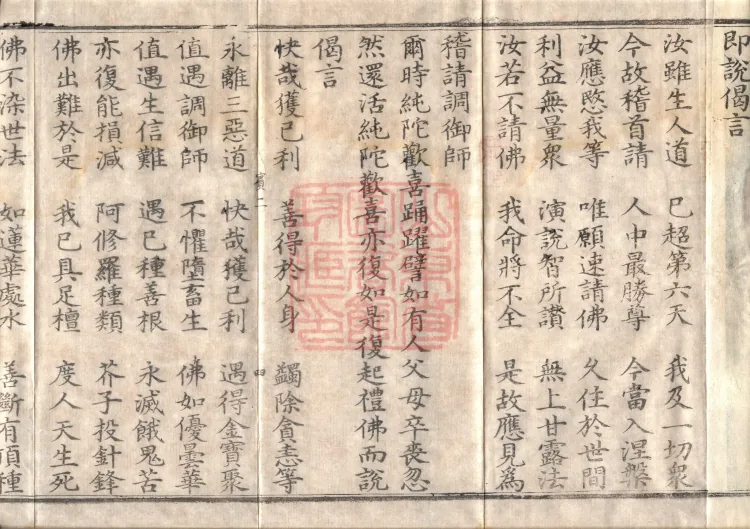 即說偈言
汝雖生人道 已超第六天 我及一切衆
今故稽首請 人中最勝尊 今當入涅槃
汝應愍我等 唯願速請佛 久住於世間
利益無量衆 演說智所讃 無上甘露法
汝若不請佛 我命將不全 是故應見爲
稽請調御師
爾時純陀歡喜踊躍譬如有人父母卒喪忽
然還活純陀歡喜亦復如是復起禮佛而說
偈言
快哉獲己利 善得於人身 蠲除貪恚等
賓二 四
永離三惡道 快哉獲己利 遇得金寶聚
值遇調御師 不懼墮畜生 佛如優曇華
值遇生信難 遇已種善根 永滅餓鬼苦
亦復能損減 阿修羅種類 芥子投針鋒
佛出難於是 我已具足檀 度人天生死
佛不染世法 如蓮華處水 善斷有頂種